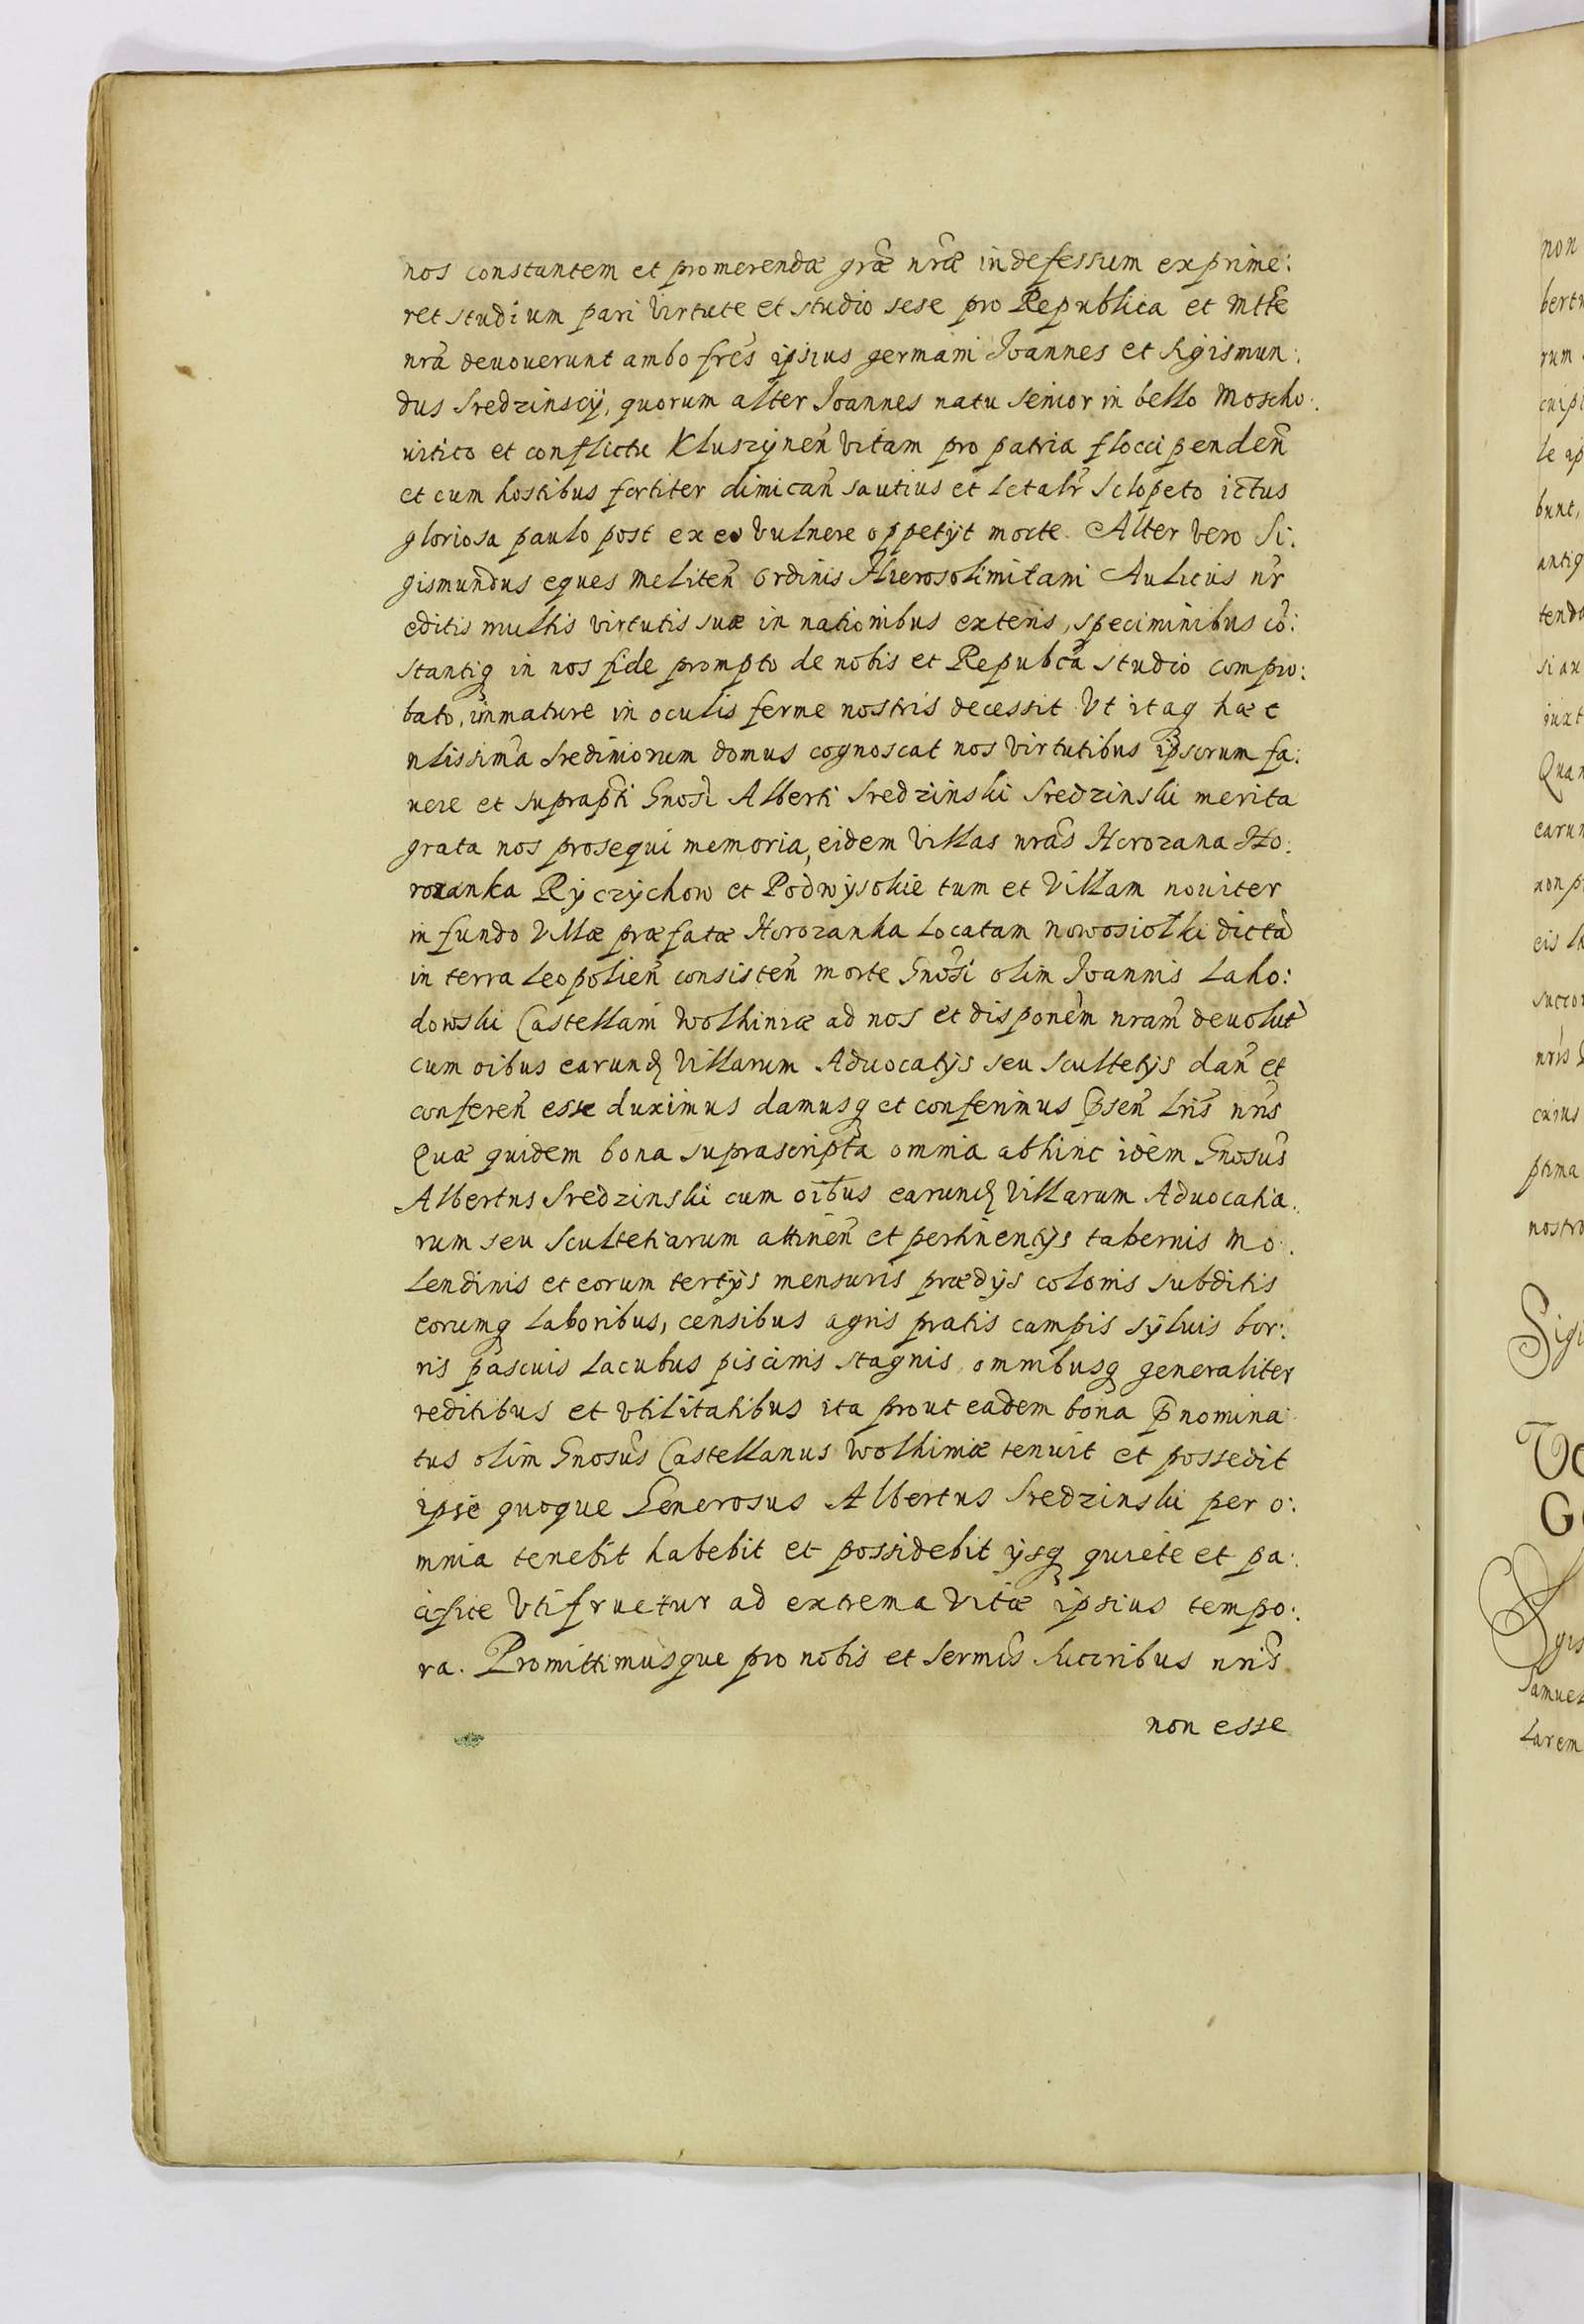 nos constantem et promerendæ grae nrae indefessum exprime:
ret studium pari virtute et studio sese pro Republica et Mtte
nra deuouerunt ambo fres ipsius germani Joannes et Sigismun:
dus Sredzinscy, quorum alter Joannes natu senior in bello Moscho:
uitico et conflictu Kluszynen vitam pro patria flocci penden
et cum hostibus fortiter dimican sautius et letalr sclopeto ictus
gloriosa paulo post ex eo vulnere oppetijt morte. Alter vero Si:
gismundus eques Meliten Ordinis Hierosolimitani Aulicus nr
editis multis virtutis suæ in nationibus exteris, speciminibus co:
stantiq in nos fide prompto de nobis et Repubca studio compro:
bato, immature in oculis ferme nostris decessit Vt itaq hæc
nlissima Srediniorum domus cognoscat nos virtutibus ipsorum fa:
uere et suprapti Gnosi Alberti Sredzinski Sredzinski merita
grata nos prosequi memoria, eidem villas nras Horozana Ho:
rozanka Ryczychow et Podwysokie tum et Villam nouiter
in fundo Villæ præfatæ Horozanka locatam nowosiolki dicta
in terra Leopolien consisten morte Gnosi olim Joannis Laho:
dowski Castellani Wolhiniæ ad nos et disponem nram deuolut
cum oibus earund Villarum Aduocatijs seu Scultetijs dan et
conferen esse duximus damusq et conferimus Psen Lris nris
Quæ quidem bona suprascripta omnia abhinc idem Gnosus
Albertus Sredzinski cum oibus earund Villarum Aduocatia:
rum seu Scultetiarum attinen et pertinentijs tabernis mo:
lendinis et eorum tertijs mensuris prædijs colonis subditis
eorumq laboribus, censibus agris pratis campis syluis bor:
ris pascuis lacubus piscinis stagnis omnibusq generaliter
reditibus et vtilitatibus ita prout eadem bona Pnomina:
tus olim Gnosus Castellanus Wolhiniæ tenuit et possedit
ipse quoque Generosus Albertus Sredzinski per o:
mnia tenebit habebit et possidebit ijsq quiete et pa:
cifice vtifruetur ad extrema vitæ ipsius tempo:
ra. Promittimusque pro nobis et Sermis Succribus nris
non esse